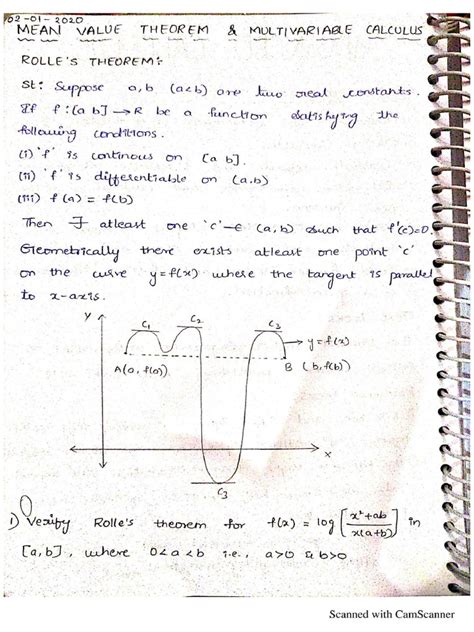 02-01-2020
MEAN VALUE THEOREM & MULTIVARIABLE CALCULUS
ROLLE'S THEOREM:-
St: Suppose a,b (a<b) are two real constants.
If f:[a b]→R be a function satisfying the
following conditions.
(i) 'f' is continous on [a b].
(ii) 'f' is differentiable on (a,b)
(iii) f(a) = f(b)
Then ∃ atleast one 'c' ∈ (a,b) such that f'(c)=0.
Geometrically there exists atleast one point 'c'
on the curve y=f(x) where the tangent is parallel
to x-axis.
y
C₁ C₂ C₃
→ y=f(x)
A(a, f(a))
B (b, f(b))
x
C₃
1) Verify Rolle's theorem for f(x) = log [x²+ab / x(a+b)] in
[a,b], where 0<a<b i.e., a>0 & b>0
Scanned with CamScanner